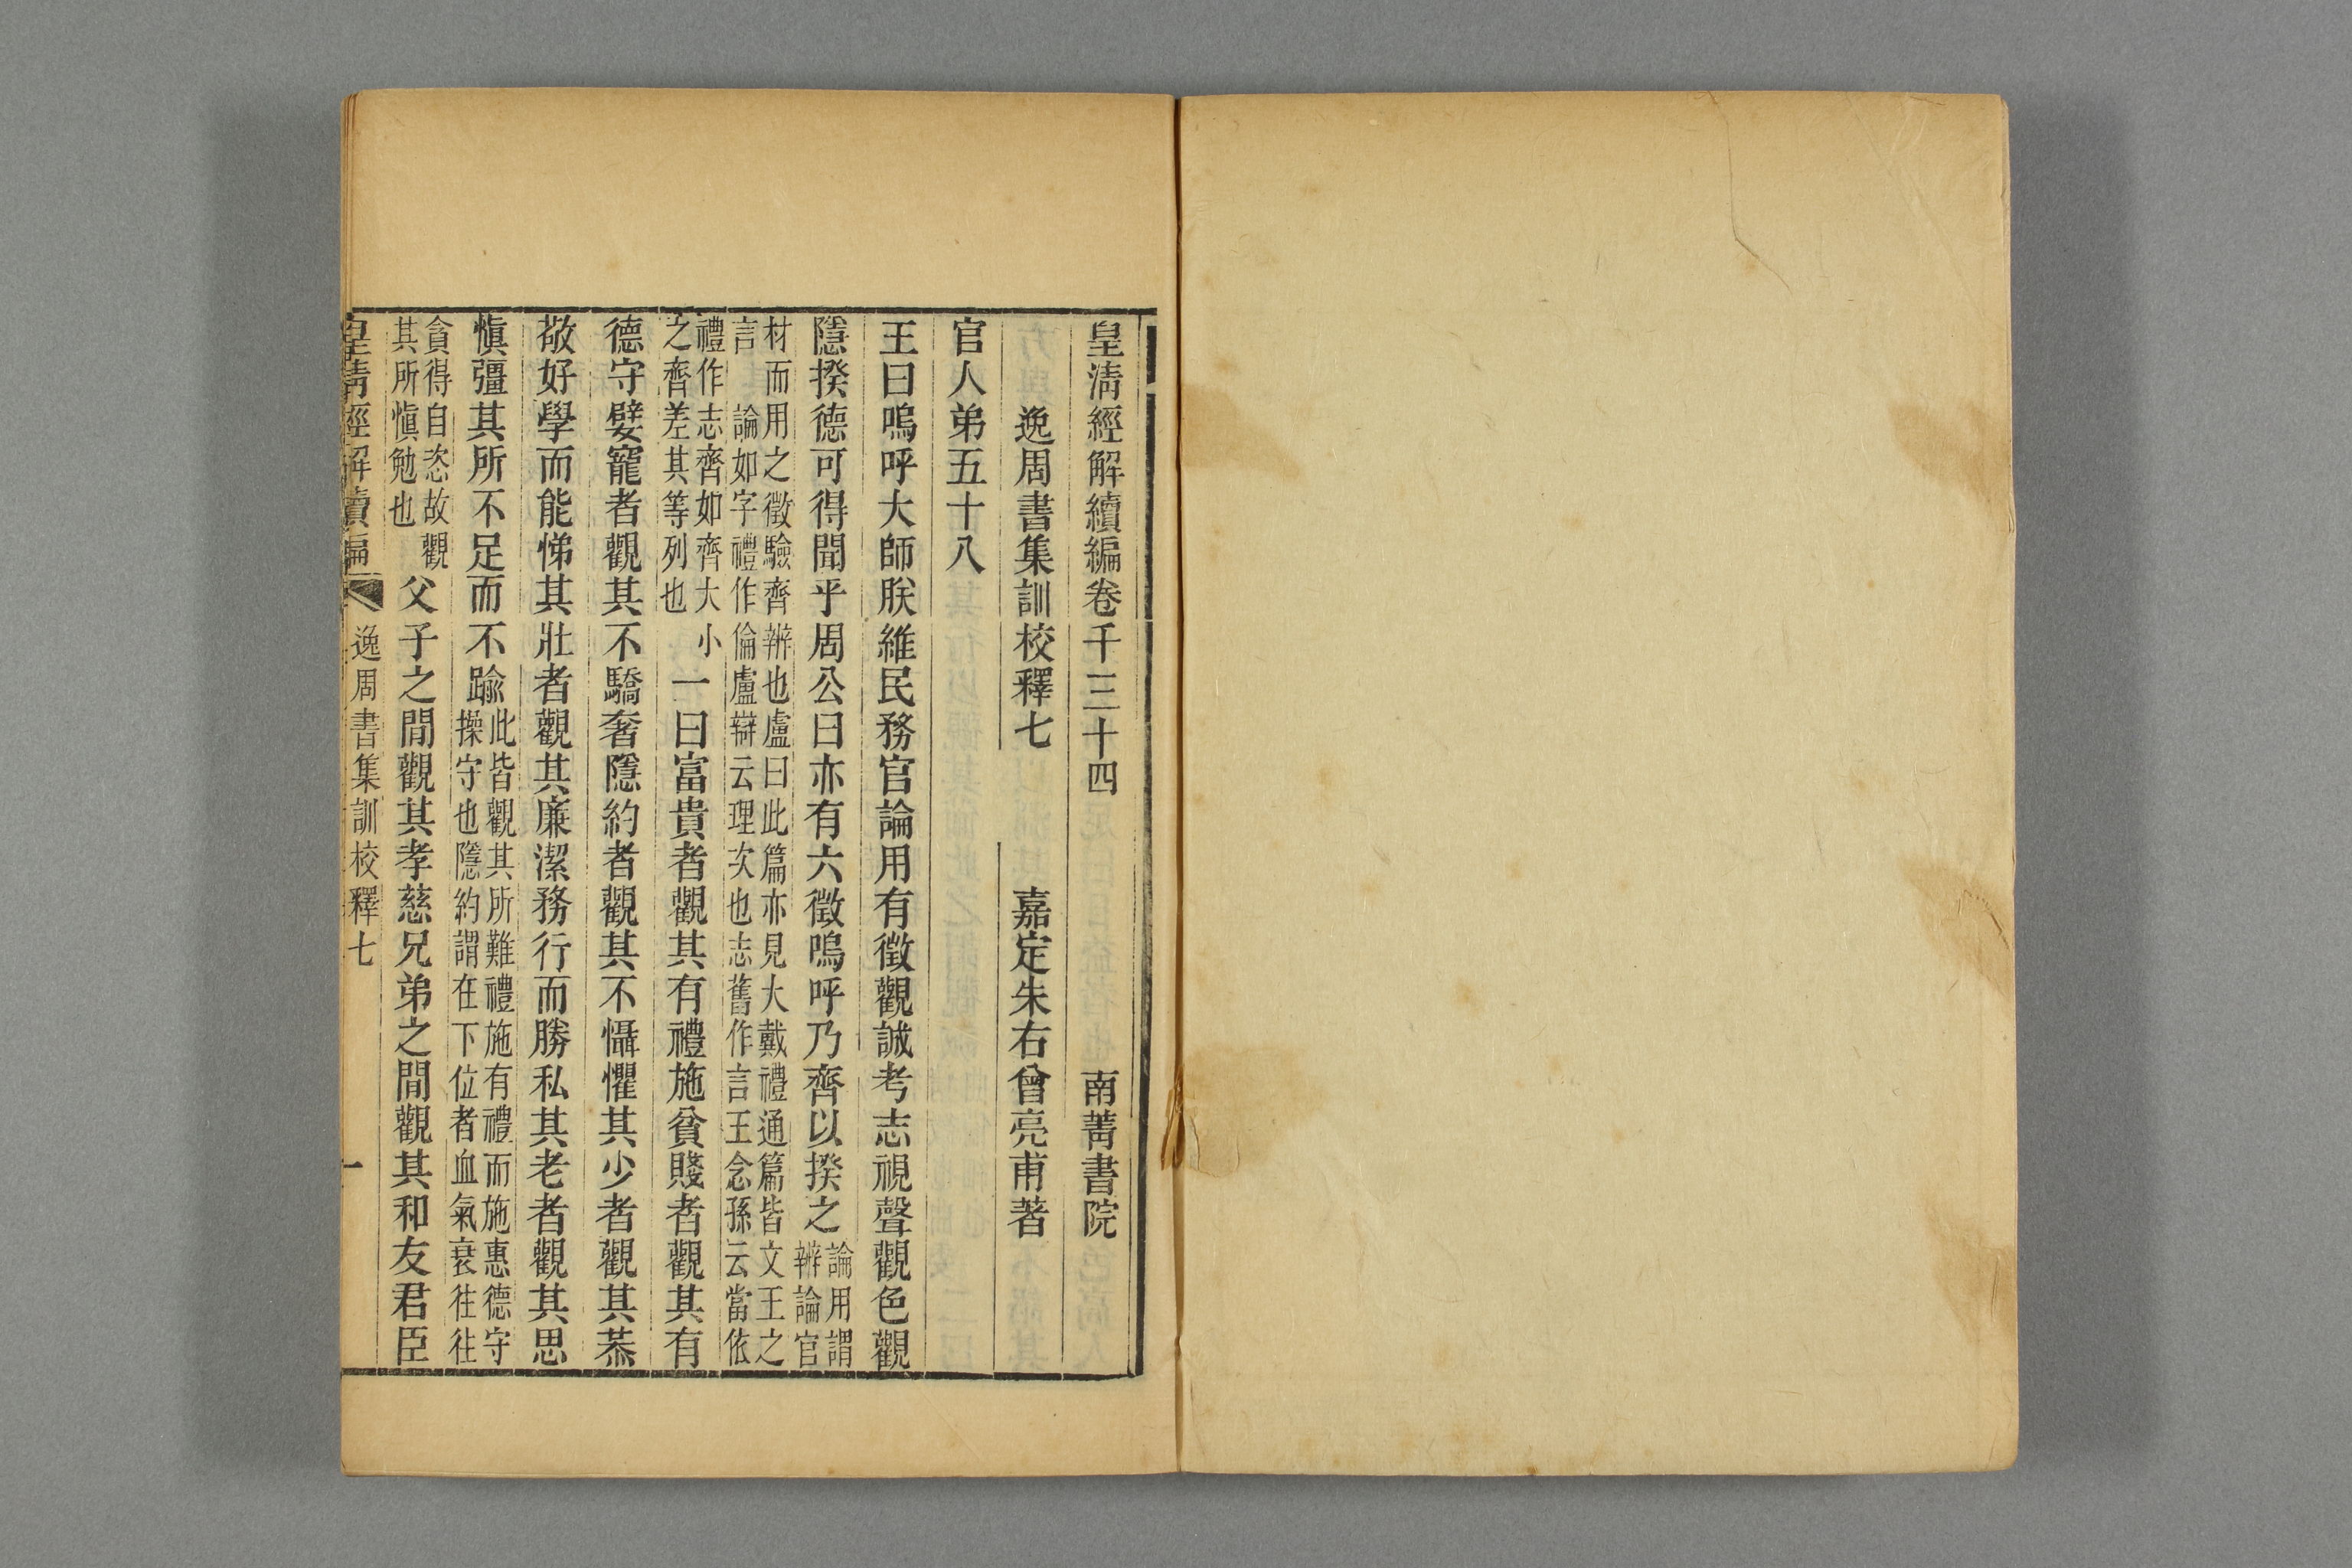 皇清經解續編卷千三十四 南菁書院
逸周書集訓校釋七 嘉定朱右曾亮甫著
官人弟五十八
王曰嗚呼大師朕維民務官論用有徵觀誠考志視聲觀色觀
隱揆德可得聞乎周公曰亦有六徵嗚呼乃齊以揆之論用謂辨論官
材而用之徵驗齊辨也盧曰此篇亦見大戴禮通篇皆文王之
言 論如字禮作倫盧辯云理次也志舊作言王念孫云當依
禮作志齊如齊大小
之齊差其等列也
一曰富貴者觀其有禮施貧賤者觀其有
德守嬖寵者觀其不驕奢隱約者觀其不懾懼其少者觀其恭
敬好學而能悌其壯者觀其廉潔務行而勝私其老者觀其思
愼彊其所不足而不踰
此皆觀其所難禮施有禮而施惠德守
操守也隱約謂在下位者血氣衰往往
貪得自恣故觀
其所愼勉也
父子之閒觀其孝慈兄弟之閒觀其和友君臣
皇清經解續編 逸周書集訓校釋七 一